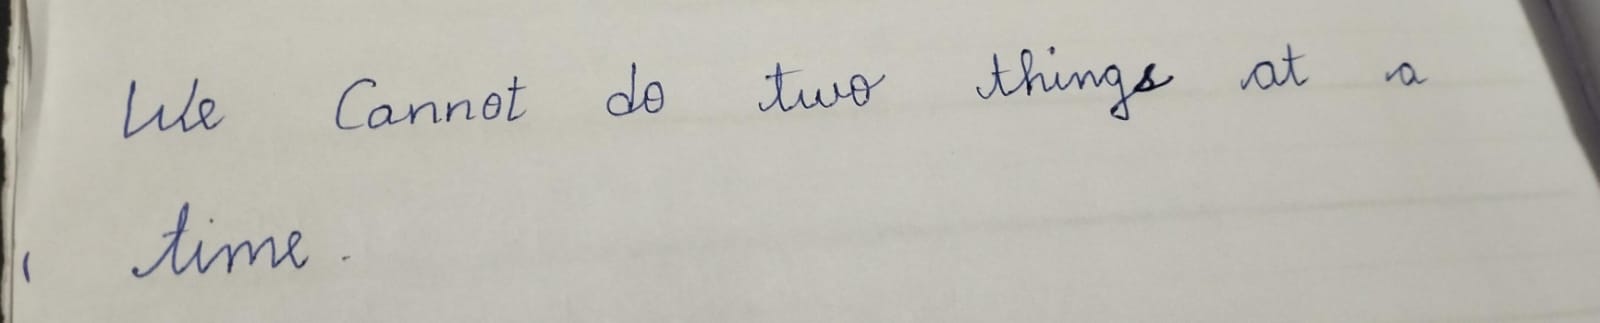 We Cannot do two things at a
time.